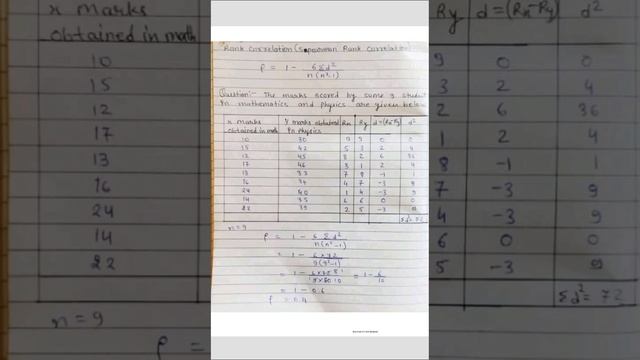 x marks
obtained in math
10
15
12
17
13
16
24
14
22
n = 9
Rank correlation (Spearman Rank correlation
ρ = 1 - 6Σd²
n(n²-1)
Question:- The marks scored by some 9 student
in mathematics and physics are given below
x marks obtained in math | y marks obtained in physics | Rx | Ry | d=(Rx-Ry) | d²
10 30 9 9 0 0
15 42 5 3 2 4
12 45 8 2 6 36
17 46 3 1 2 4
13 33 7 8 -1 1
16 34 4 7 -3 9
24 40 1 4 -3 9
14 35 6 6 0 0
22 39 2 5 -3 9
Σd² = 72
n = 9
ρ = 1 - 6Σd²
n(n²-1)
= 1 - 6×72
9(9²-1)
= 1 - 6
10
= 1 - 0.6
ρ = 0.4
Ry d=(Rx-Ry) d²
9 0 0
3 2 4
2 6 36
1 2 4
8 -1 1
7 -3 9
4 -3 9
6 0 0
5 -3 9
Σd² = 72
ρ =